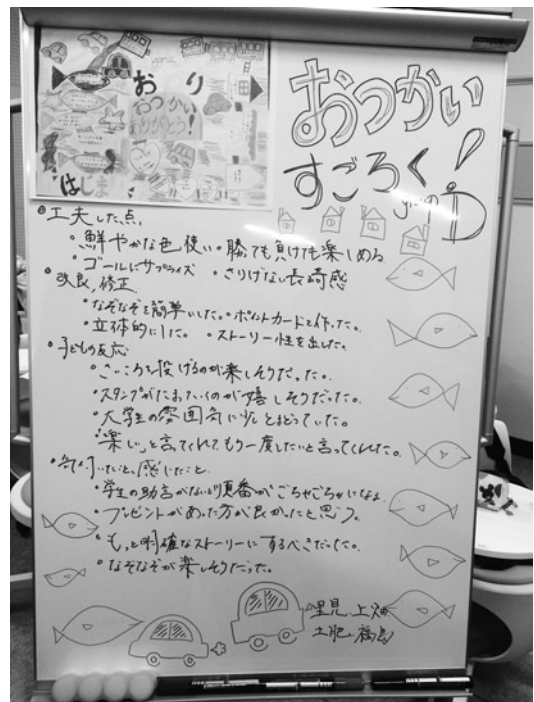 おり
おつかい
ありがとう!
はじま
おつかい
すごろく!
group D
•工夫した点
•鮮やかな色使い •勝っても負けても楽しめる
•ゴールにサプライズ •さりげない長崎感
•改良,修正
•なぞなぞを簡単にした。•ポイントカードを作った。
•立体的にした。 •ストーリー性を出した。
•子どもの反応
•さいころを投げるのが楽しそうだった。
•スタンプがたまっていくのが嬉しそうだった。
•大学生の雰囲気に少しとまどっていた。
•「楽しい」と言ってくれて、もう一度したいと言ってくれた。
•気付いたこと、感じたこと
•学生の助言がないと順番がごちゃごちゃになる
•プレゼントがあった方が良かったと思う。
•もっと明確なストーリーにするべきだった。
•なぞなぞが楽しそうだった。
里見 上畑
土肥 福島